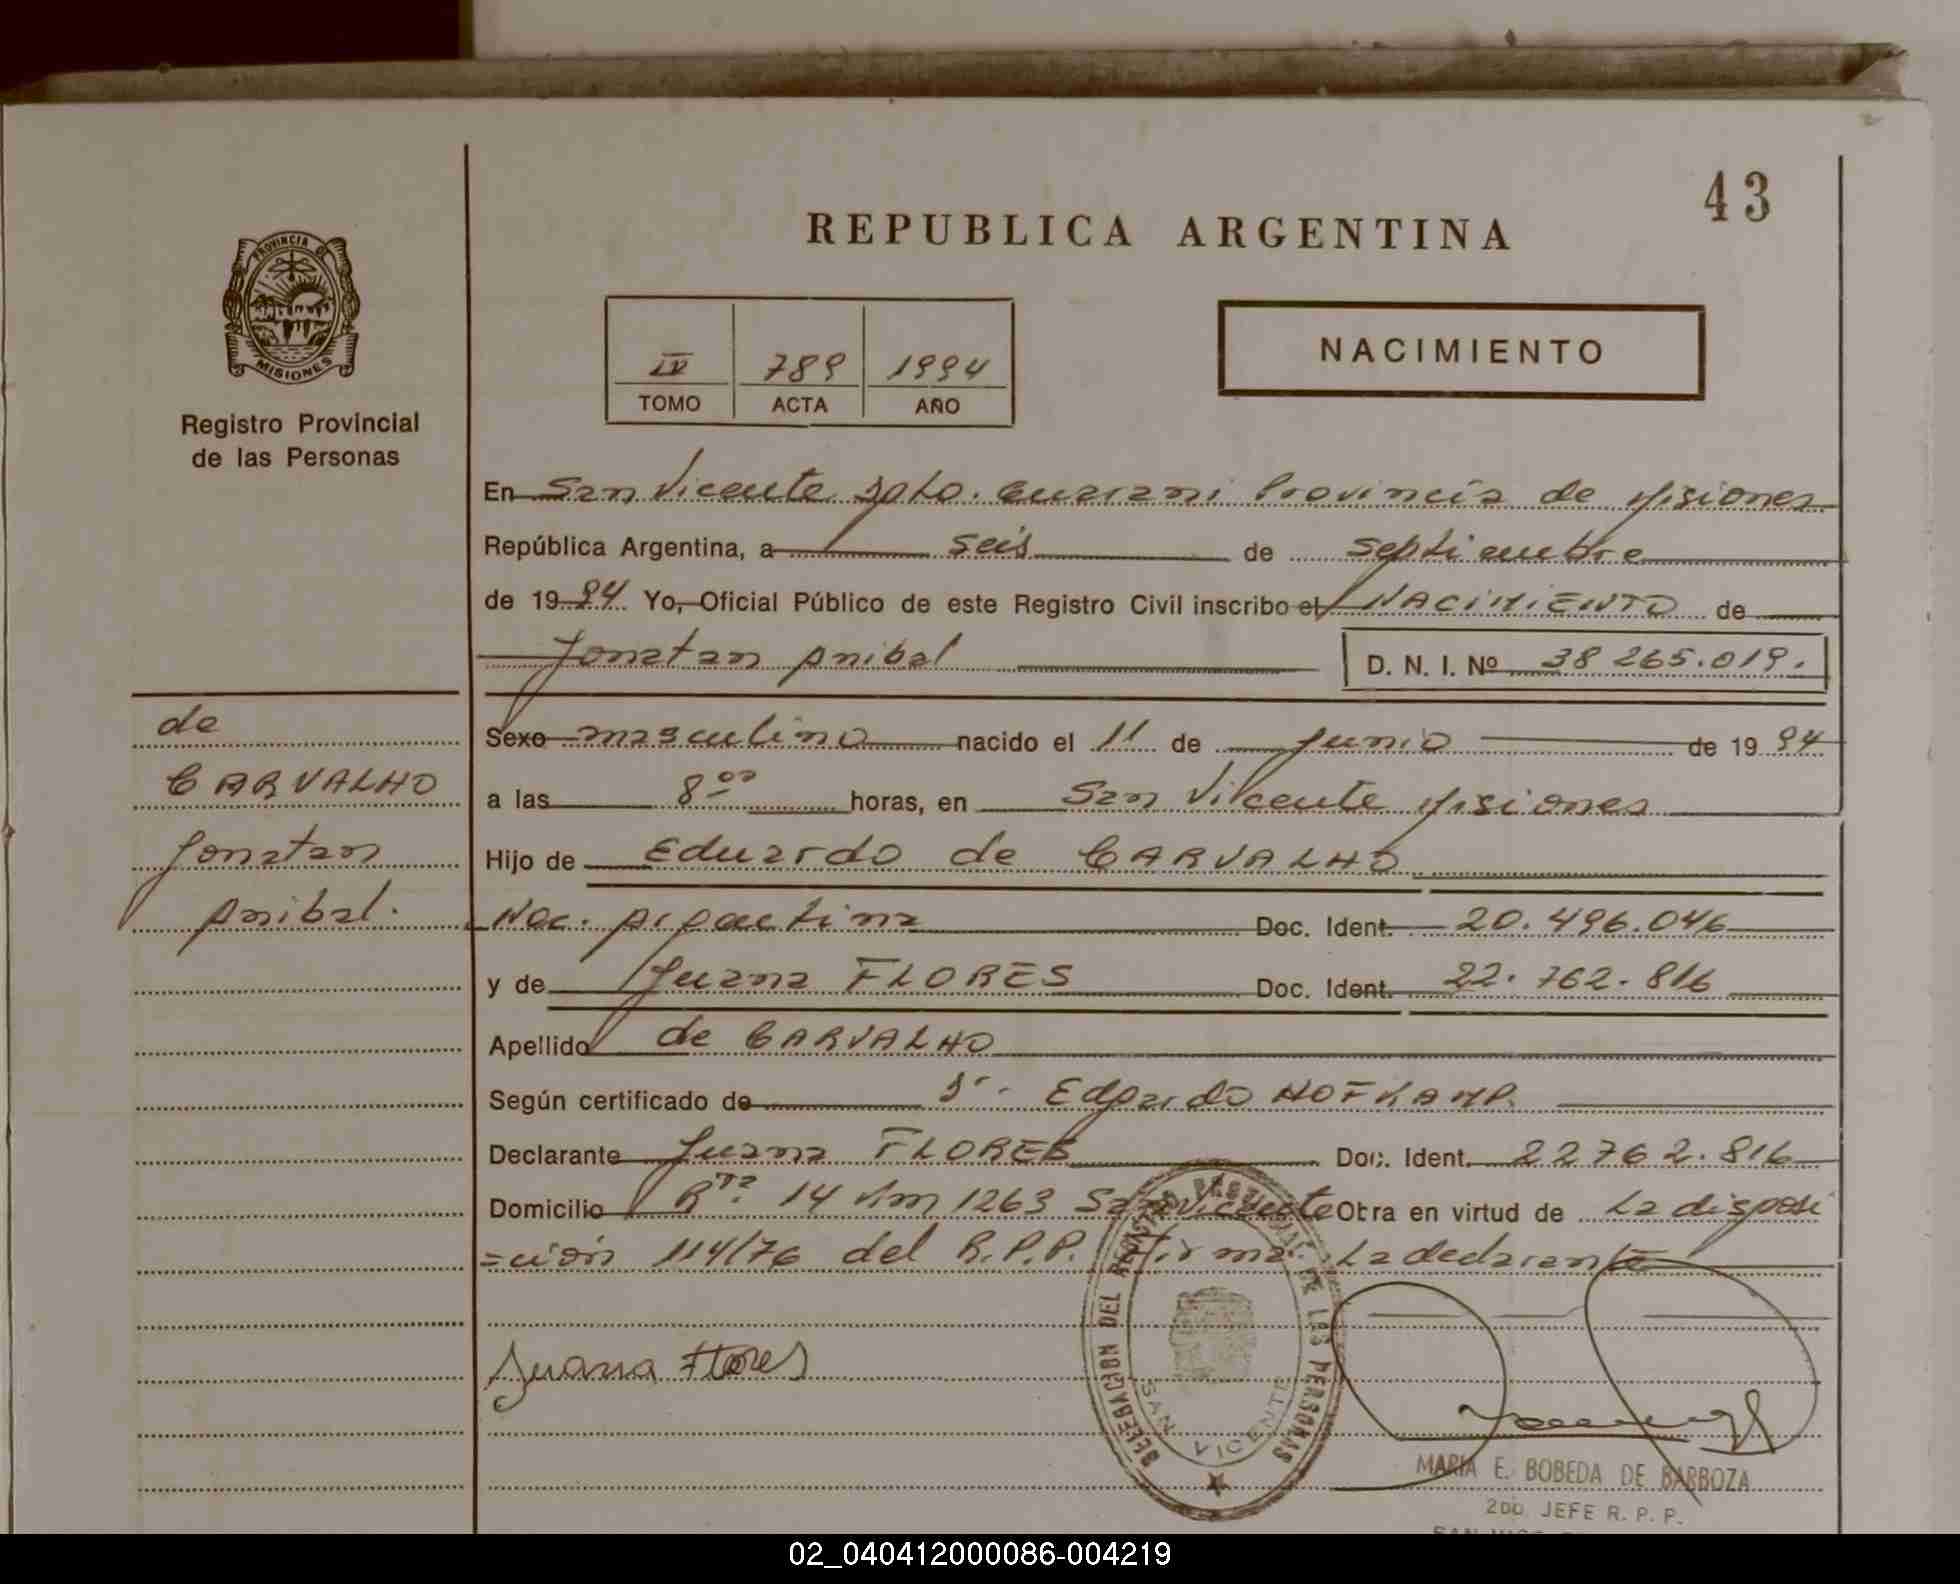 43
REPUBLICA ARGENTINA
PROVINCIA DE
MISIONES
Registro Provincial
de las Personas
IV 789 1994
TOMO ACTA AÑO
NACIMIENTO
En San Vicente Dpto. Guarani Provincia de Misiones
República Argentina, a seis de septiembre
de 1994 Yo, Oficial Público de este Registro Civil inscribo el NACIMIENTO de
Jonatan Anibal D. N. I. Nº 38 265.019.
de
CARVALHO
Jonatan
Anibal.
Sexo masculino nacido el 11 de Junio de 1994
a las 8 00 horas, en San Vicente Misiones
Hijo de Eduardo de CARVALHO
Nac. Argentina Doc. Ident. 20.496.046
y de Juana FLORES Doc. Ident. 22.762.816
Apellido de CARVALHO
Según certificado de Dr. Edgardo HOFKAMP.
Declarante Juana FLORES Doc. Ident. 22762.816
Domicilio Rta 14 Km 1263 San Vicente Obra en virtud de La disposi
=ción 114/76 del R.P.P. Firma: La declarante
Juana Flores
DELEGACION DEL REGISTRO PROVINCIAL DE LAS PERSONAS
SAN VICENTE
MARIA E. BOBEDA DE BARBOZA
2DO. JEFE R. P. P.
02_040412000086-004219